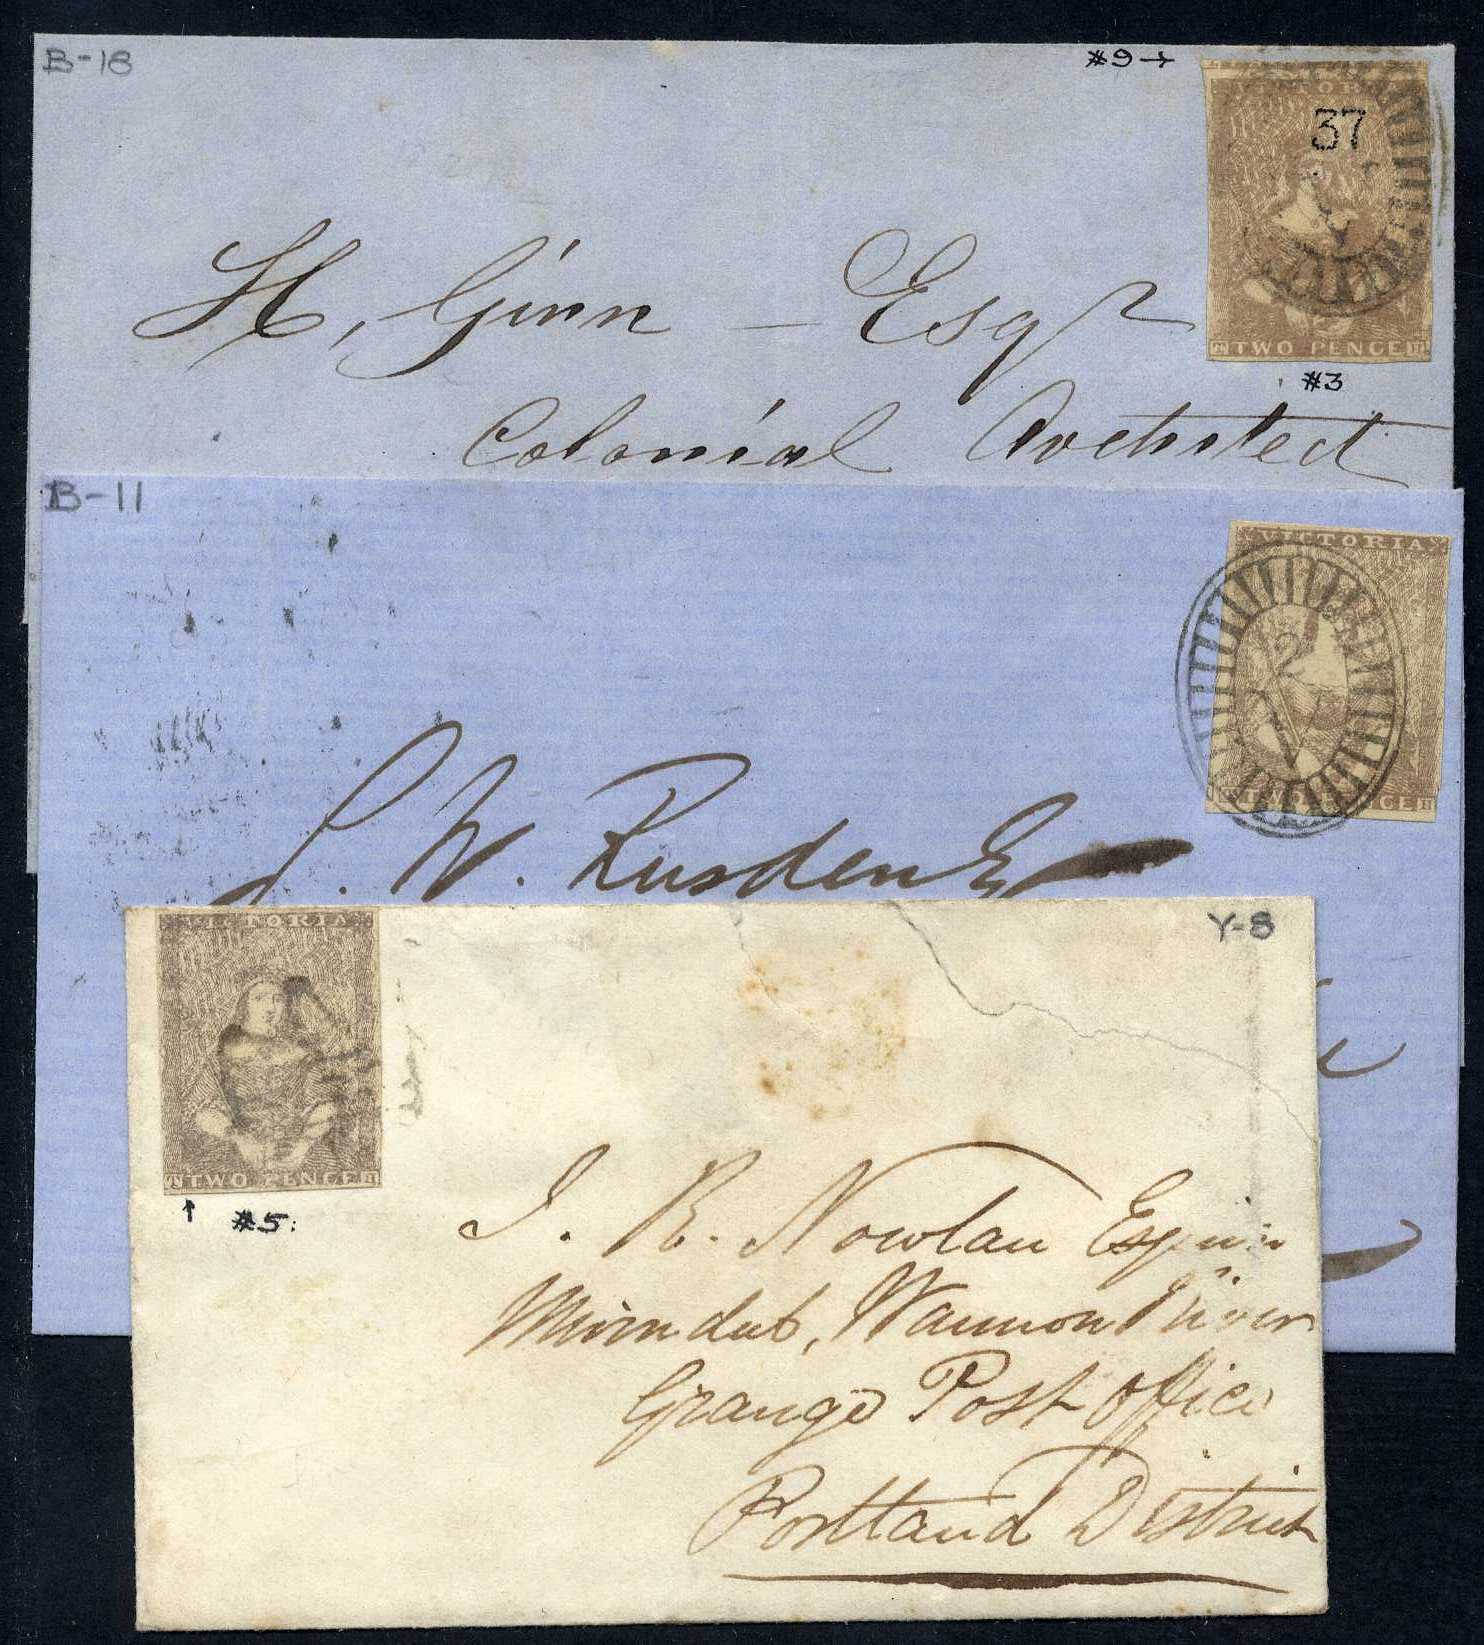 B-18
#9→
VICTORIA
37
TWO PENCE
#3
H. Ginn — Esqr
Colonial Architect
B-11
VICTORIA
2
V
TWO PENCE
W. Rusden
Y-8
VICTORIA
TWO PENCE
↑ #5:
J. R. Nowlan Esquire
Murndub, Wannon River
Grange Post Office
Portland District